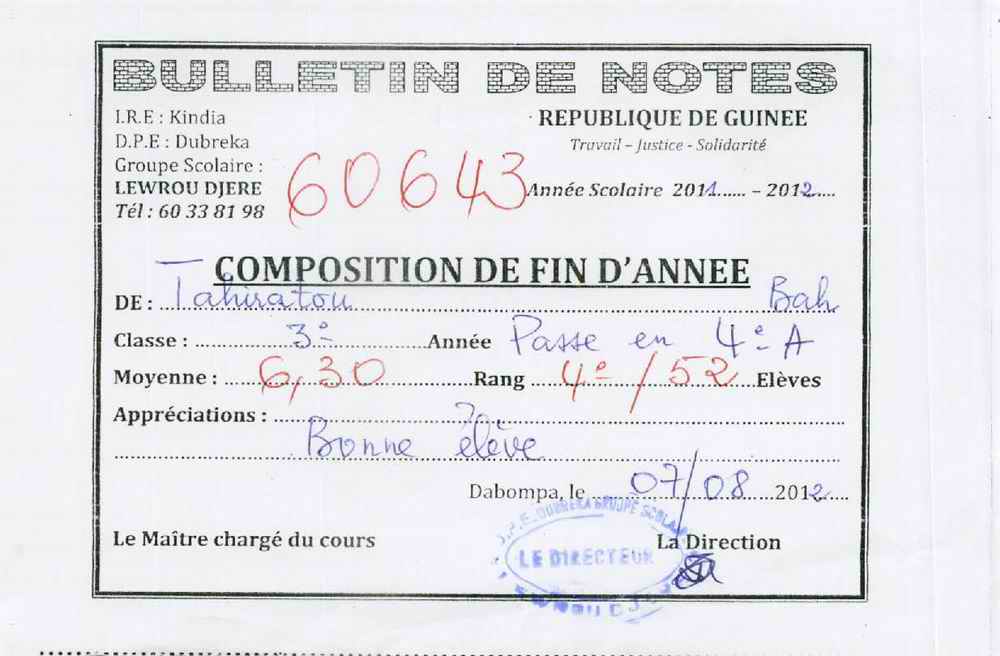 BULLETIN DE NOTES
I.R.E : Kindia
D.P.E : Dubreka
Groupe Scolaire :
LEWROU DJERE
Tél : 60 33 81 98
60643
REPUBLIQUE DE GUINEE
Travail – Justice - Solidarité
Année Scolaire 2011...... – 2012.....
COMPOSITION DE FIN D'ANNEE
DE : Tahiratou Bah
Classe : 3e Année Passe en 4e A
Moyenne : 6,30 Rang 4e / 52 Elèves
Appréciations :
Bonne élève
Dabompa, le 07/08 2012
Le Maître chargé du cours La Direction
D.P.E. DUBREKA GROUPE SCOLAIRE
LE DIRECTEUR